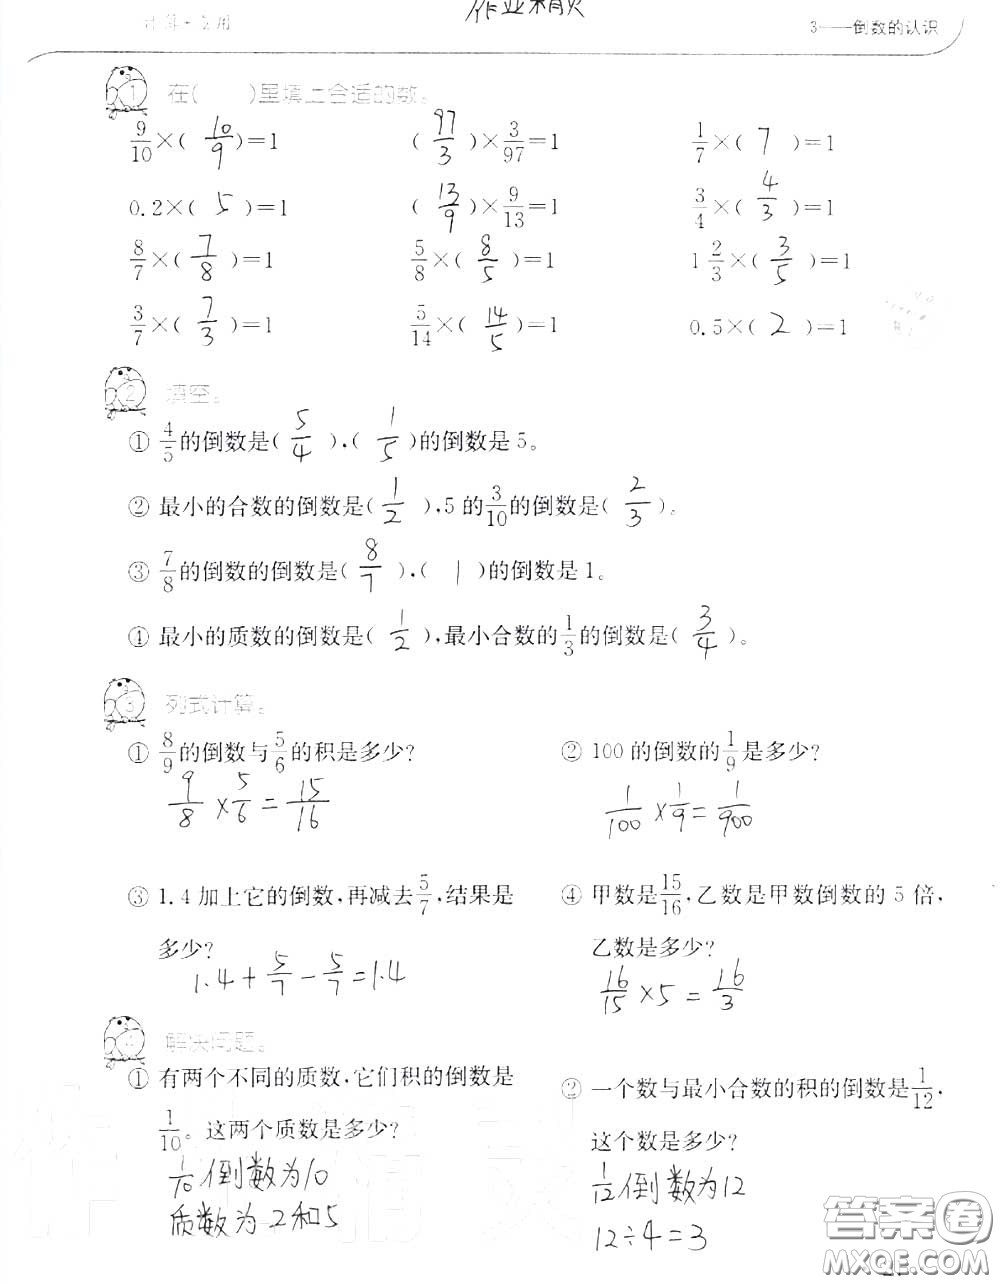 计算·应用
作业精灵
3——倒数的认识
1 在( )里填上合适的数。
9/10×( 10/9 )=1 ( 97/3 )×3/97=1 1/7×( 7 )=1
0.2×( 5 )=1 ( 13/9 )×9/13=1 3/4×( 4/3 )=1
8/7×( 7/8 )=1 5/8×( 8/5 )=1 1 2/3×( 3/5 )=1
3/7×( 7/3 )=1 5/14×( 14/5 )=1 0.5×( 2 )=1
2 填空。
① 4/5的倒数是( 5/4 ),( 1/5 )的倒数是5。
② 最小的合数的倒数是( 1/2 ),5的3/10的倒数是( 2/3 )。
③ 7/8的倒数的倒数是( 8/7 ),( 1 )的倒数是1。
④ 最小的质数的倒数是( 1/2 ),最小合数的1/3的倒数是( 3/4 )。
3 列式计算。
① 8/9的倒数与5/6的积是多少?
9/8×5/6=15/16
② 100的倒数的1/9是多少?
1/100×1/9=1/900
③ 1.4加上它的倒数,再减去5/7,结果是
多少?
1.4+5/7-5/7=1.4
④ 甲数是15/16,乙数是甲数倒数的5倍,
乙数是多少?
16/15×5=16/3
4 解决问题。
① 有两个不同的质数,它们积的倒数是
1/10。这两个质数是多少?
1/10倒数为10
质数为2和5
② 一个数与最小合数的积的倒数是1/12,
这个数是多少?
1/12倒数为12
12÷4=3
答案圈
MXQE.COM